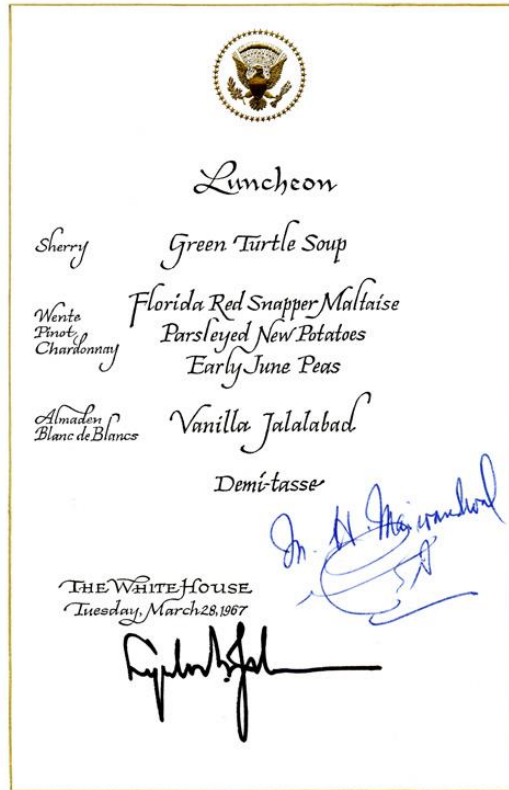 Luncheon
Sherry
Green Turtle Soup
Wente
Pinot
Chardonnay
Florida Red Snapper Maltaise
Parsleyed New Potatoes
Early June Peas
Almaden
Blanc de Blancs
Vanilla Jalalabad
Demi-tasse
M. H. Maiwandwal
THE WHITE HOUSE
Tuesday, March 28, 1967
Lyndon B. Johnson